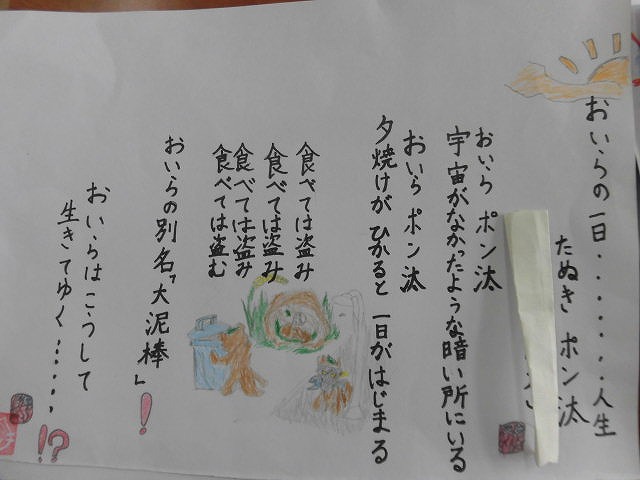 おいらの一日・・・・・・人生
たぬき ポン汰
おいら ポン汰
宇宙がなかったような暗い所にいる
おいら ポン汰
夕焼けが ひかると 一日がはじまる
食べては盗み
食べては盗み
食べては盗み
食べては盗む
おいらの別名『大泥棒』!
おいらはこうして
生きてゆく……!?